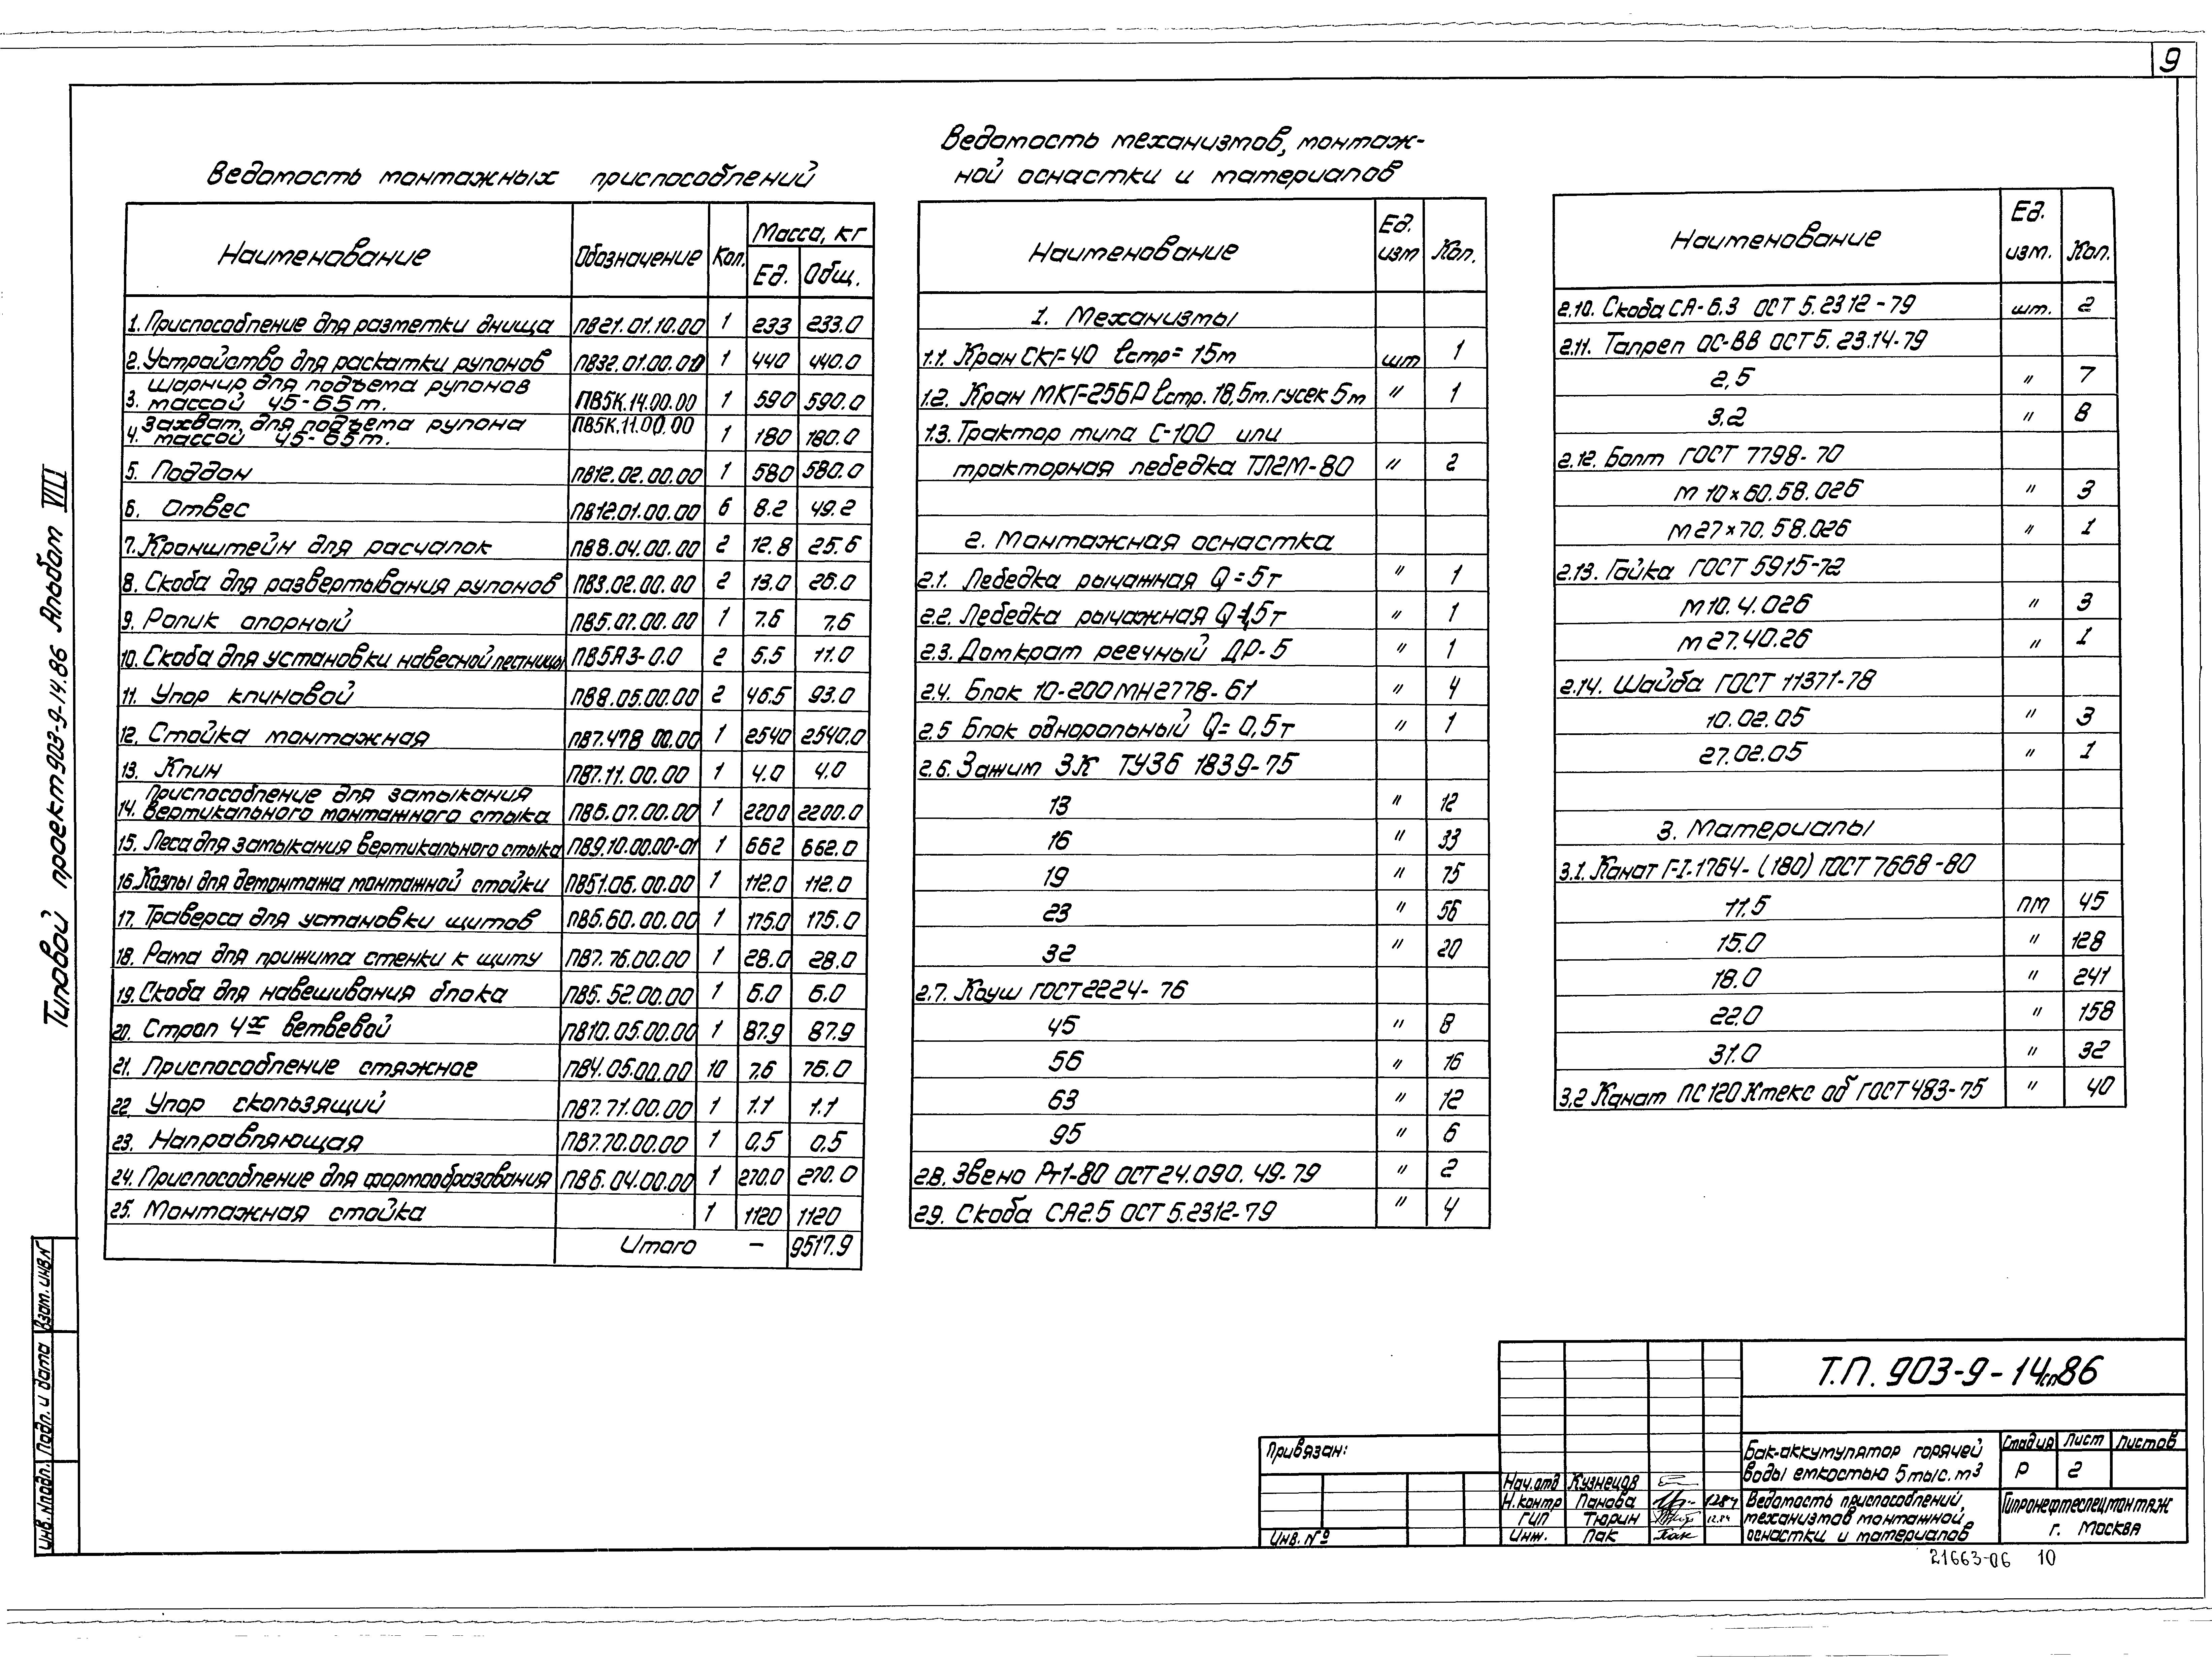 9
Типовой проект 903-9-14.86 Альбом VIII
Ведомость монтажных приспособлений
Наименование Обозначение Кол. Масса, кг
Ед. Общ.
1. Приспособление для разметки днища ПВ21.01.10.00 1 233 233.0
2. Устройство для раскатки рулонов ПВ32.01.00.00 1 440 440.0
3. Шарнир для подъема рулонов массой 45-65т. ПВ5К.14.00.00 1 590 590.0
4. Захват для подъема рулона массой 45-65т. ПВ5К.11.00.00 1 180 180.0
5. Поддон ПВ12.02.00.00 1 580 580.0
6. Отвес ПВ12.01.00.00 6 8.2 49.2
7. Кронштейн для расчалок ПВ8.04.00.00 2 12.8 25.6
8. Скоба для развертывания рулонов ПВ3.02.00.00 2 13.0 26.0
9. Ролик опорный ПВ5.07.00.00 1 7.6 7.6
10. Скоба для установки навесной лестницы ПВ5АЗ-0.0 2 5.5 11.0
11. Упор клиновой ПВ8.05.00.00 2 46.5 93.0
12. Стойка монтажная ПВ7.478 00.00 1 2540 2540.0
13. Клин ПВ7.11.00.00 1 4.0 4.0
14. Приспособление для замыкания вертикального монтажного стыка ПВ6.07.00.00 1 2200 2200.0
15. Леса для замыкания вертикального стыка ПВ9.10.00.00-01 1 662 662.0
16. Козлы для демонтажа монтажной стойки ПВ51.06.00.00 1 112.0 112.0
17. Траверса для установки щитов ПВ6.60.00.00 1 175.0 175.0
18. Рама для прижима стенки к щиту ПВ7.76.00.00 1 28.0 28.0
19. Скоба для навешивания блока ПВ6.52.00.00 1 6.0 6.0
20. Строп 4х ветвевой ПВ10.05.00.00 1 87.9 87.9
21. Приспособление стяжное ПВ4.05.00.00 10 7.6 76.0
22. Упор скользящий ПВ7.71.00.00 1 1.1 1.1
23. Направляющая ПВ7.70.00.00 1 0,5 0,5
24. Приспособление для формообразования ПВ6.04.00.00 1 270.0 270.0
25. Монтажная стойка 1 1120 1120
Итого – 9517.9
Ведомость механизмов, монтаж-
ной оснастки и материалов
Наименование Ед. изм Кол.
1. Механизмы
1.1. Кран СКГ-40 lстр= 15м шт 1
1.2. Кран МКГ-25БР lстр. 18,5м. гусек 5м " 1
1.3. Трактор типа С-100 или
тракторная лебедка ТЛ2М-80 " 2
2. Монтажная оснастка
2.1. Лебедка рычажная Q=5т " 1
2.2. Лебедка рычажная Q=1,5т " 1
2.3. Домкрат реечный ДР-5 " 1
2.4. Блок 10-200 МН2778-61 " 4
2.5 Блок однорольный Q= 0,5т " 1
2.6. Зажим ЗК ТУ36 1839-75
13 " 12
16 " 33
19 " 75
23 " 56
32 " 20
2.7. Коуш ГОСТ 2224-76
45 " 8
56 " 16
63 " 12
95 " 6
2.8. Звено Рт1-80 ОСТ 24.090.49-79 " 2
2.9. Скоба СА2.5 ОСТ 5.2312-79 " 4
Наименование Ед. изм. Кол.
2.10. Скоба СА-6.3 ОСТ 5.2312-79 шт. 2
2.11. Талреп ОС-ВВ ОСТ 5.23.14-79
2,5 " 7
3.2 " 8
2.12. Болт ГОСТ 7798-70
М 10×60.58.026 " 3
М 27×70.58.026 " 1
2.13. Гайка ГОСТ 5915-72
М10.4.026 " 3
М27.40.26 " 1
2.14. Шайба ГОСТ 11371-78
10.02.05 " 3
27.02.05 " 1
3. Материалы
3.1. Канат Г-I-1764-(180) ГОСТ 7668-80
11,5 пм 45
15.0 " 128
18.0 " 241
22.0 " 158
31.0 " 32
3.2 Канат ПС 120 Ктекс об ГОСТ 483-75 " 40
Взам. инв. №
Подп. и дата
Инв. № подл.
Т.П. 903-9-14сп86
Привязан:
Инв. №
Нач. отд Кузнецов
Н. контр Панова 1284
ГИП Тюрин 12.84
Инж. Пак
Бак-аккумулятор горячей
воды емкостью 5 тыс. м3
Стадия Лист Листов
Р 2
Ведомость приспособлений,
механизмов монтажной
оснастки и материалов
Гипронефтеспецмонтаж
г. Москва
21663-06 10